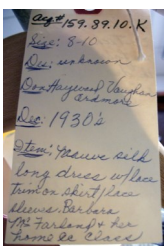 Acq# 159.89.10.K
Size: 8-10
Des: unknown
Don: Haywood Vaughan
Ardmore
Dec: 1930's
Item: mauve silk
long dress w/lace
trim on skirt/lace
sleeves. Barbara
McFarland & her
home ec class